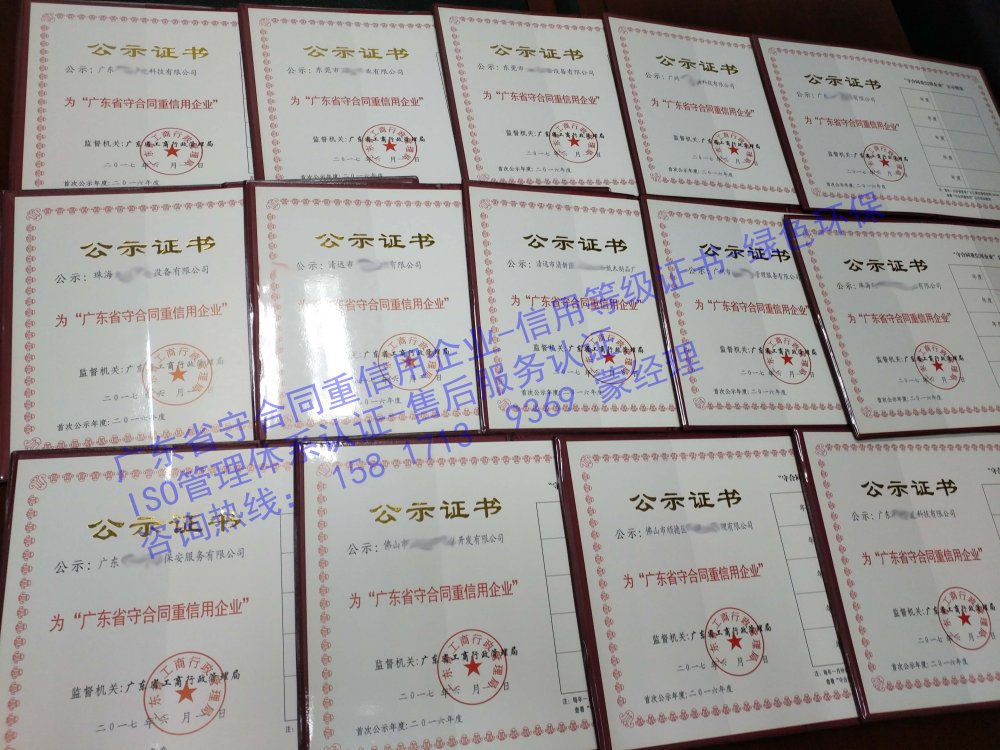 公示证书
公示：广东 科技有限公司
为“广东省守合同重信用企业”
监督机关：广东省工商行政管理局
二〇一七年六月一日
首次公示年度：二〇一六年度
公示证书
公示：东莞市 业有限公司
为“广东省守合同重信用企业”
监督机关：广东省工商行政管理局
二〇一七年六月一日
首次公示年度：二〇一六年度
公示证书
公示：东莞市 设备有限公司
为“广东省守合同重信用企业”
监督机关：广东省工商行政管理局
二〇一七年六月一日
首次公示年度：二〇一六年度
公示证书
公示：广州 科技有限公司
为“广东省守合同重信用企业”
监督机关：广东省工商行政管理局
二〇一七年六月一日
首次公示年度：二〇一六年度
公示证书
公示：广 有限公司
为“广东省守合同重信用企业”
监督机关：广东省工商行政管理局
二〇一七年六月一日
首次公示年度：二〇一六年度
年度
年度
年度
年度
公示证书
公示：珠海 设备有限公司
为“广东省守合同重信用企业”
监督机关：广东省工商行政管理局
二〇一七年六月一日
首次公示年度：二〇一六年度
公示证书
公示：清远市 有限公司
为“广东省守合同重信用企业”
监督机关：广东省工商行政管理局
二〇一七年六月一日
首次公示年度：二〇一六年度
公示证书
公示：清远市清新区 木制品厂
为“广东省守合同重信用企业”
监督机关：广东省工商行政管理局
二〇一七年六月一日
首次公示年度：二〇一六年度
公示证书
公示： 管理服务有限公司
为“广东省守合同重信用企业”
监督机关：广东省工商行政管理局
二〇一七年六月一日
首次公示年度：二〇一六年度
公示证书
公示：珠海 有限公司
为“广东省守合同重信用企业”
监督机关：广东省工商行政管理局
二〇一七年六月一日
首次公示年度：二〇一六年度
年度
年度
公示证书
公示：广东 保安服务有限公司
为“广东省守合同重信用企业”
监督机关：广东省工商行政管理局
二〇一七年六月一日
公示证书
公示：佛山市 开发有限公司
为“广东省守合同重信用企业”
监督机关：广东省工商行政管理局
二〇一七年六月一日
首次公示年度：二〇一六年度
公示证书
公示：佛山市顺德区 理有限公司
为“广东省守合同重信用企业”
监督机关：广东省工商行政管理局
二〇一七年六月一日
首次公示年度：二〇一六年度
公示证书
公示：广东 科技有限公司
为“广东省守合同重信用企业”
监督机关：广东省工商行政管理局
二〇一七年六月一日
首次公示年度：二〇一六年度
广东省守合同重信用企业-信用等级证书 绿色环保
ISO管理体系认证 售后服务认证
咨询热线： 158 1713 9369 蒙经理